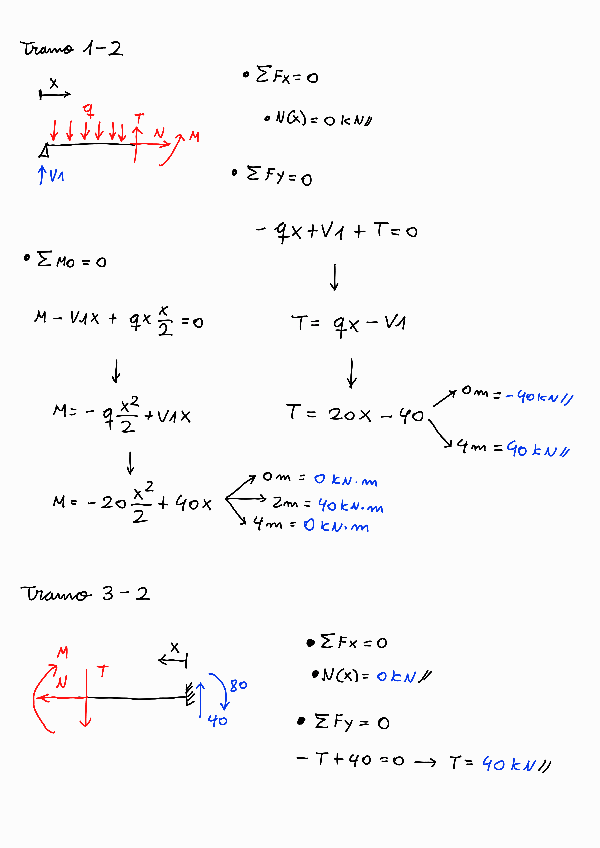 Tramo 1-2
x
q
T
N
M
V1
• ΣFx = 0
• N(x) = 0 kN//
• ΣFy = 0
- qx + V1 + T = 0
↓
T = qx - V1
↓
T = 20x - 40
0m = -40kN//
4m = 40kN//
• ΣMo = 0
M - V1x + qx x/2 = 0
↓
M = - q x²/2 + V1x
↓
M = -20 x²/2 + 40x
0m = 0 kN·m
2m = 40kN·m
4m = 0 kN·m
Tramo 3-2
M
N
T
x
80
40
• ΣFx = 0
• N(x) = 0kN//
• ΣFy = 0
- T + 40 = 0 → T = 40kN//